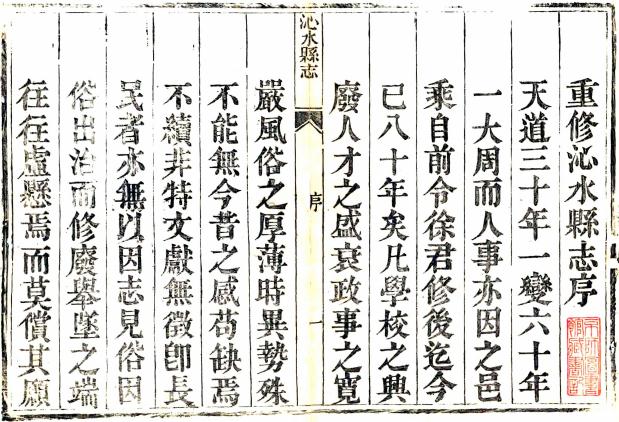 重修沁水縣志序
天道三十年一變六十年
一大周而人事亦因之邑
乘自前令徐君修後迄今
已八十年矣凡學校之興
廢人才之盛衰政事之寬
沁水縣志
序
一
嚴風俗之厚薄時異勢殊
不能無今昔之感苟缺焉
不續非特文獻無徵即長
民者亦無以因志見俗因
俗出治而修廢舉墜之端
往往虛懸焉而莫償其願